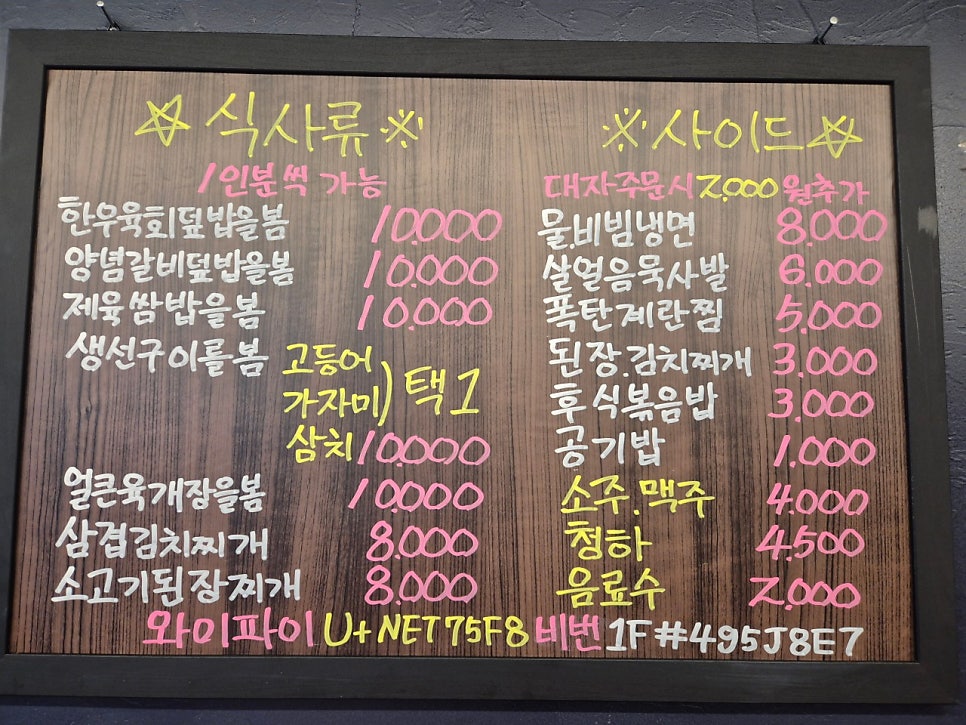 식사류
1인분씩 가능
한우육회덮밥을봄 10.000
양념갈비덮밥을봄 10.000
제육쌈밥을봄 10.000
생선구이를봄 고등어
가자미) 택1
삼치 10.000
얼큰육개장을봄 10.000
삼겹김치찌개 8.000
소고기된장찌개 8.000
사이드
대자주문시 2,000원추가
물.비빔냉면 8.000
살얼음묵사발 6.000
폭탄계란찜 5,000
된장.김치찌개 3.000
후식볶음밥 3.000
공기밥 1.000
소주.맥주 4.000
청하 4.500
음료수 2.000
와이파이 U+NET75F8 비번 1F#495J8E7